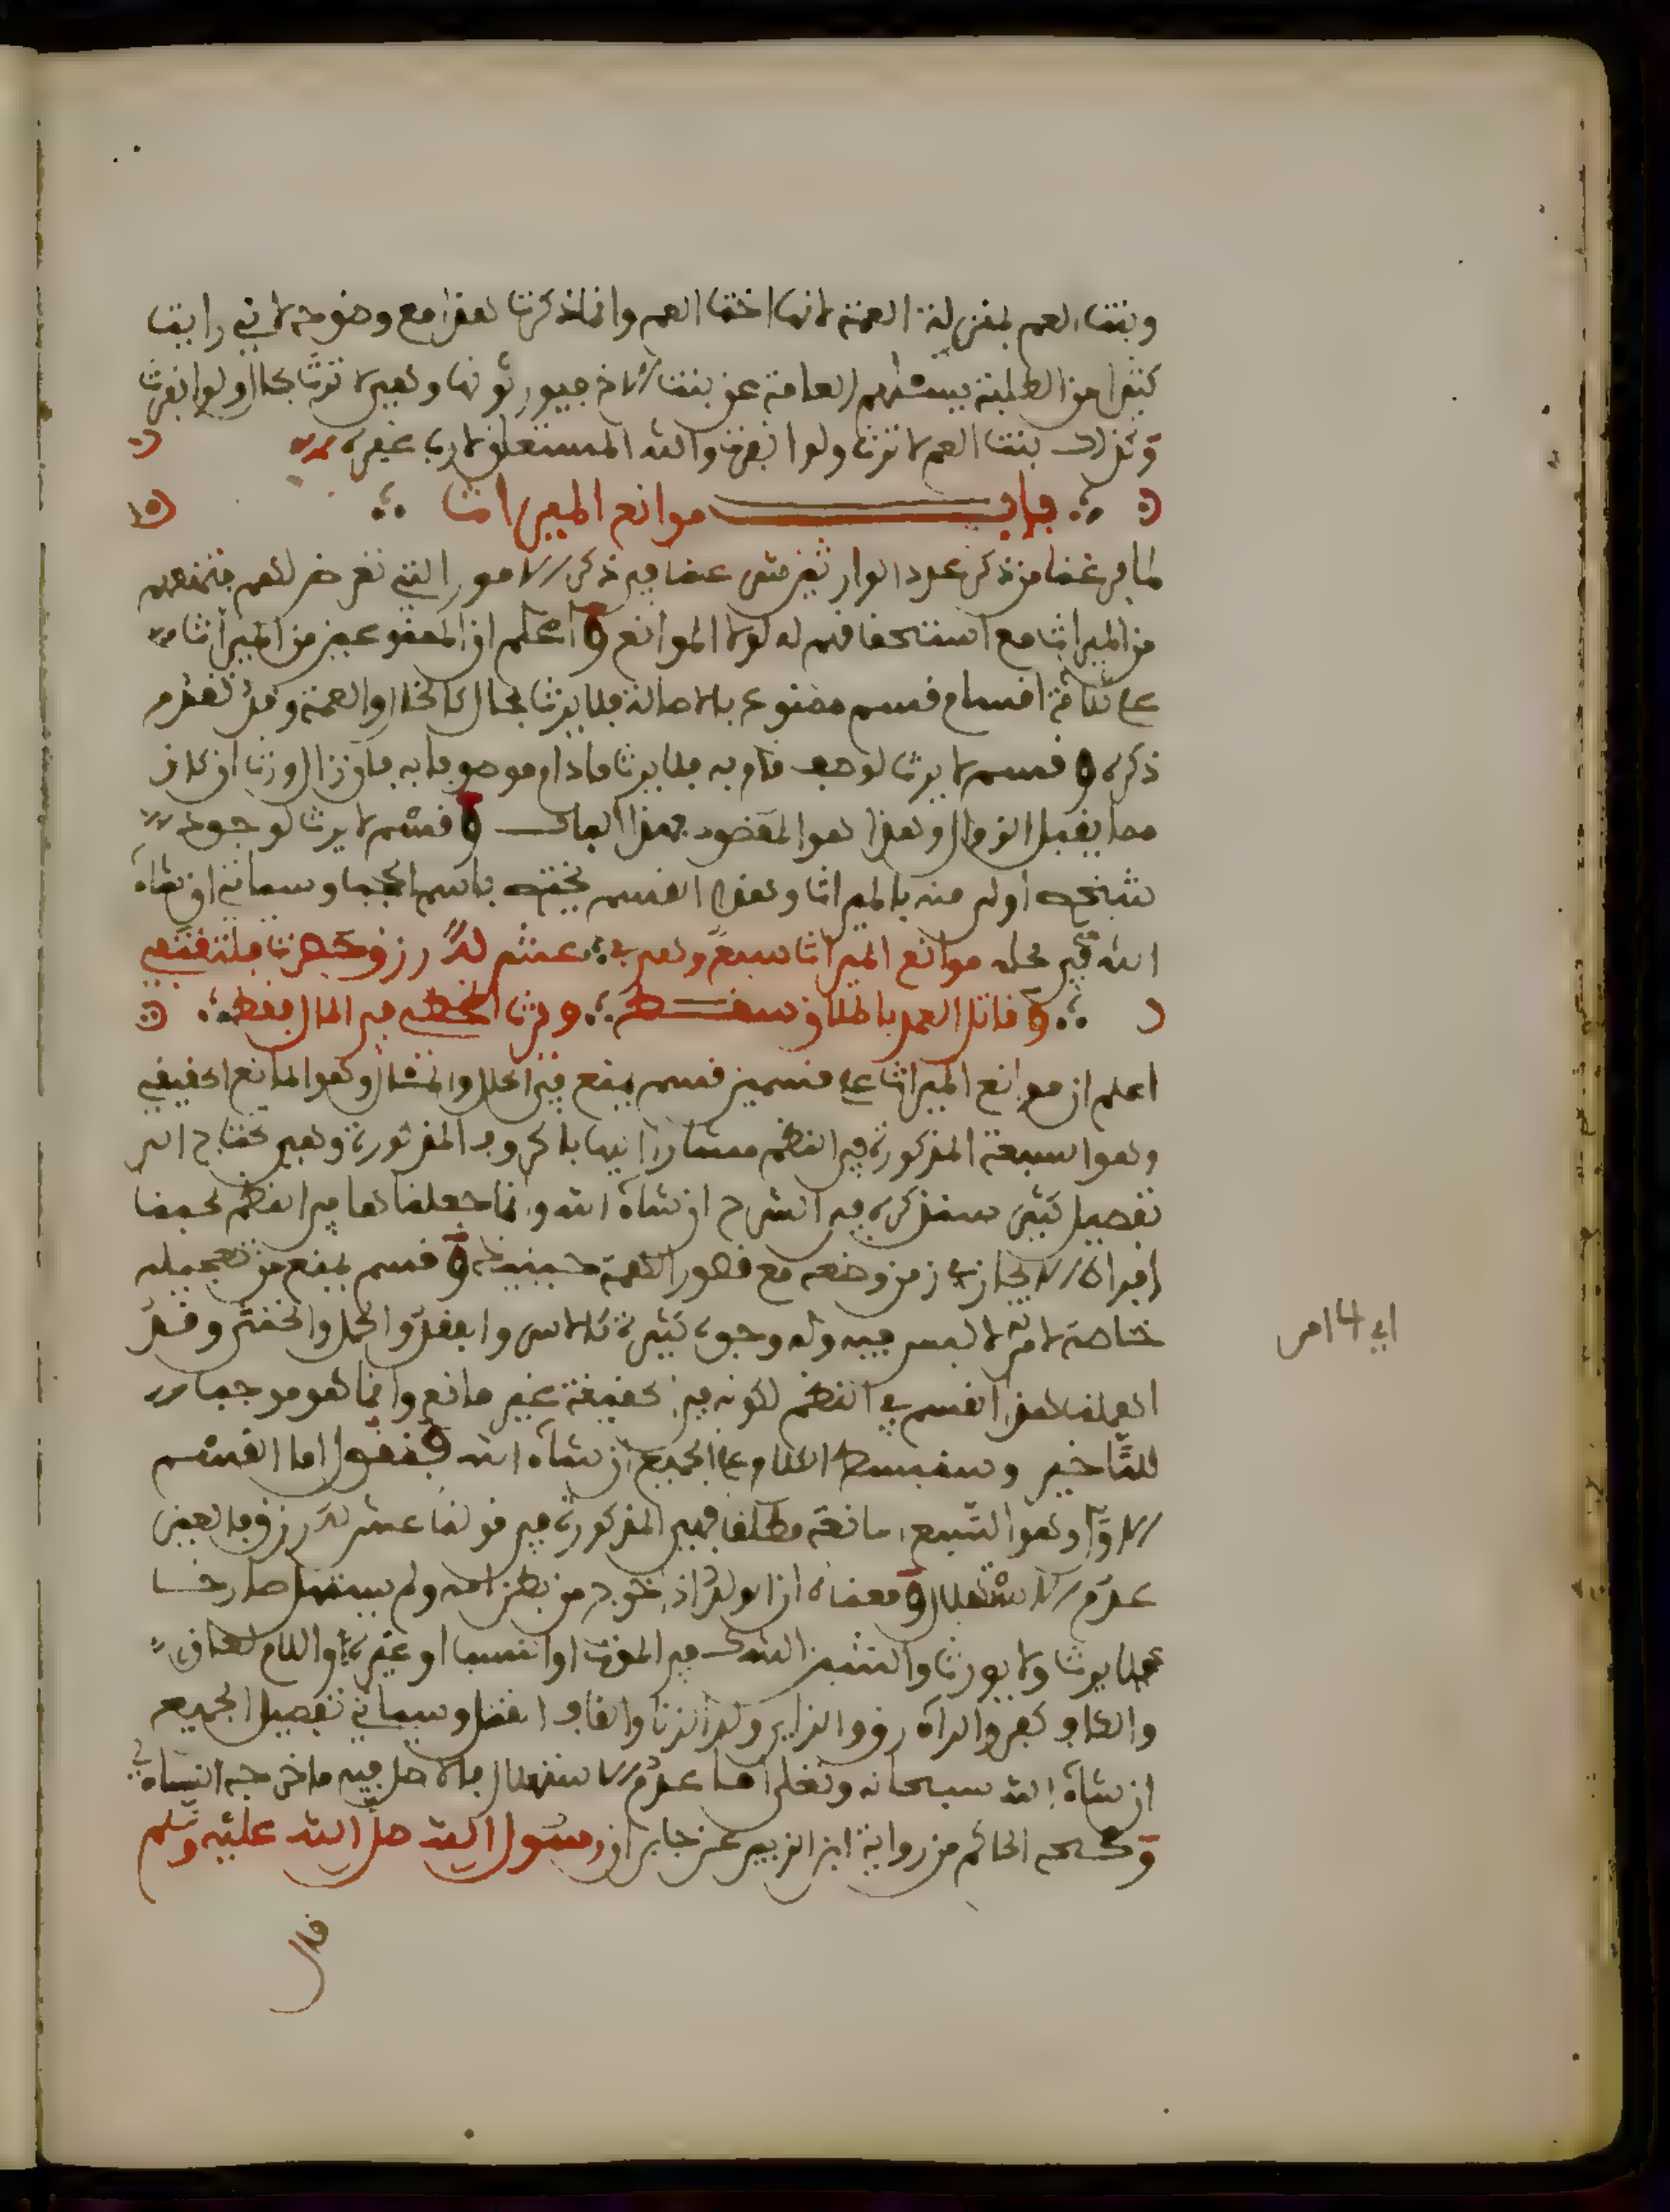 وبنت العم بمنزلة العمة لانها اخت العم وانما ذكرت هذا مع وضوحه لاني رايت
كثيرا من الطلبة يسئلهم العامة عن بنت الاخ فيورثونها وهي لا ترث بحال ولو انفردت
وكذلك بنت العم لا ترث ولو انفردت والله المستعان لا رب غيره
باب موانع الميراث
لما فرغنا من ذكر عدد الوارثين شرعنا في ذكر الامور التي تعرض لهم فتمنعهم
من الميراث مع استحقاقهم له لولا الموانع واعلم ان الممنوعين من الميراث
على ثلاثة اقسام قسم ممنوع بالاصالة فلا يرث بحال كالخال والعمة وقد تقدم
ذكره وقسم لا يرث لوصف قام به فلا يرث ما دام موصوفا به فان زال ورث ان كان
مما يقبل الزوال وهذا هو المقصود بهذا الباب وقسم لا يرث لوجود
شخص اولى منه بالميراث وهذا القسم يختص باسم الحجب وسياتي ان شاء
الله في محله موانع الميراث سبع وهي في عش لك رزق
وقاتل العمد باطلاق سقط وورث المخطي في المال فقط
اعلم ان موانع الميراث على قسمين قسم يمنع في الحال والمئال وهو المانع الحقيقي
وهو السبعة المذكورة في النظم مشارا اليها بالحروف المذكورة وهي تحتاج الى
تفصيل كثير سنذكره في الشرح ان شاء الله وانما جعلناها في النظم
وقسم يمنع من تعجيله
خاصة وله وجوه كثيرة كالاسر والفقد والحمل والخنثى وقد
اهملنا هذا القسم في النظم لكونه في الحقيقة غير مانع وانما هو موجب
للتاخير وسنبسط الكلام على الجميع ان شاء الله فنقول اما القسم
الاول وهو السبع مانعة مطلقا فهي المذكورة في قولنا عش لك رزق فالعين
عدم الاستهلال ومعناه ان الولد اذا خرج من بطن امه ولم يستهل صارخا
فلا يرث ولا يورث والشين الشك في الموت او النسب او غيره واللام لعان
والكاف كفر والراء رق والزاي ولد الزنا والقاف القتل وسياتي تفصيل الجميع
ان شاء الله سبحانه وتعلى اما عدم الاستهلال فالاصل فيه ما خرجه النساءي
وصححه الحاكم من رواية ابن الزبير عن جابر ان رسول الله صلى الله عليه وسلم
قال